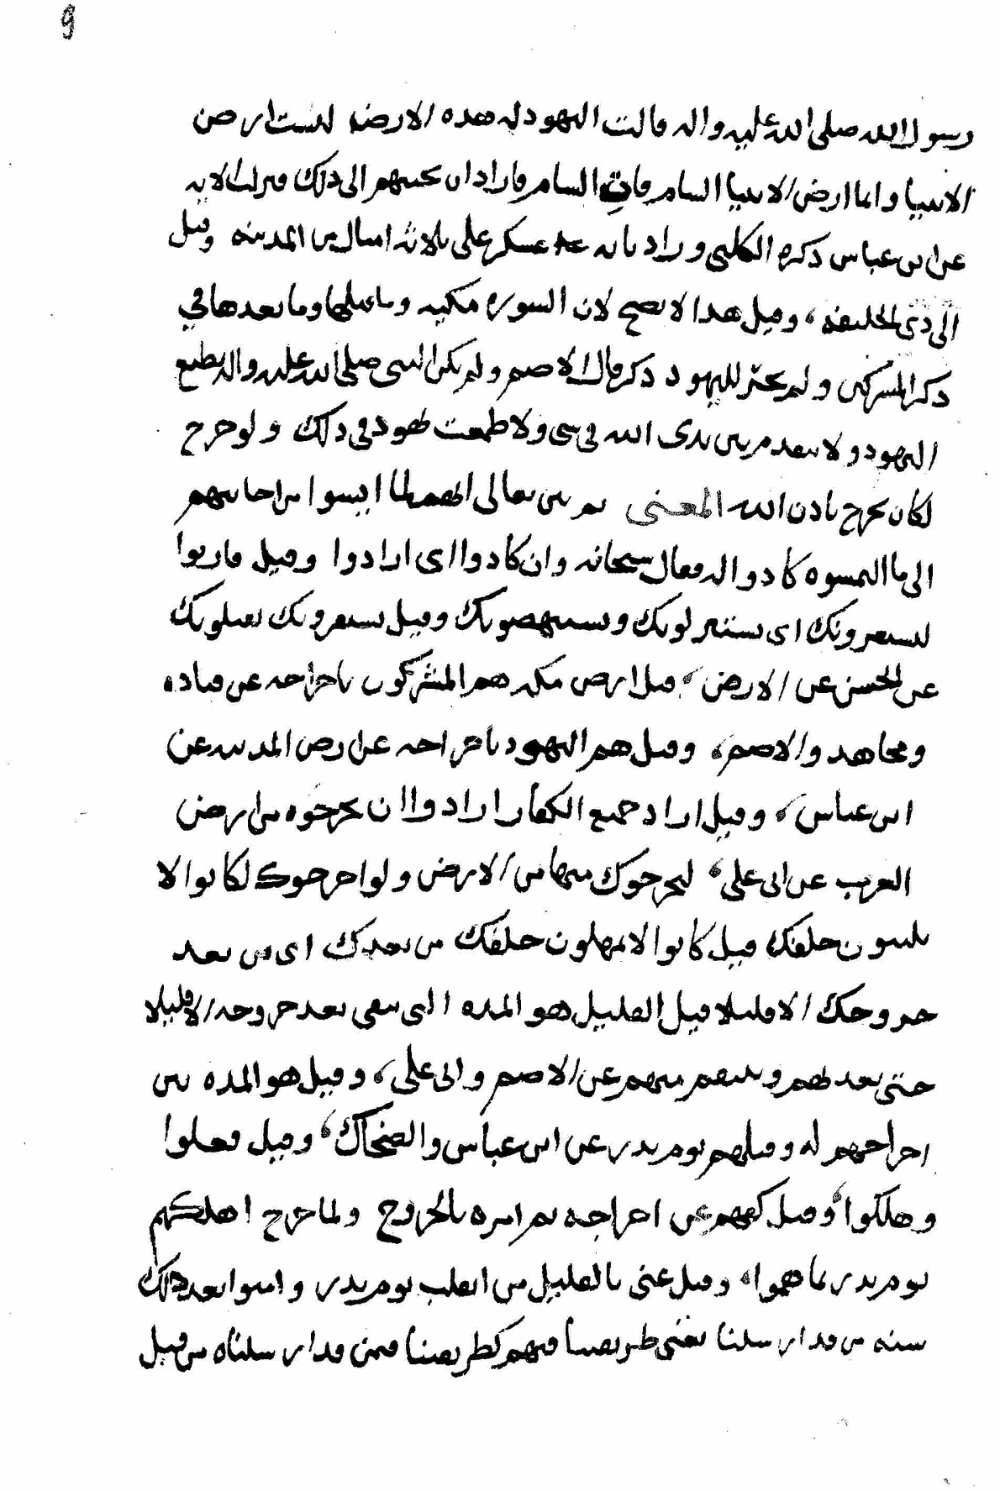 9
رسول الله صلى الله عليه واله قالت اليهود له هذه الارض ليست ارض
الانبيا وانما ارض الانبيا الشام فات الشام فاراد ان يجيبهم الى ذلك فنزلت الايه
عن ابن عباس ذكره الكلبي وزاد بانه عسكر على ثلاثة اميال من المدينه وقيل
الى ذي الحليفه، وقيل هذا لا يصح لان السوره مكيه وما قبلها وما بعدها في
ذكر المشركين ولم يجر لليهود ذكر قال الاصم ولم يكن النبي صلى الله عليه واله يطيع
اليهود ولا يتقدم بين يدى الله في شى ولا طمعت يهود في ذلك ولو خرج
لكان يخرج باذن الله المعنى ثم بين تعالى انهم لما ايسوا من اجابتهم
الى ما التمسوه كادوا له فقال سبحانه وان كادوا اى ارادوا وقيل قاربوا
ليستفزونك اى يستزلونك ويستنهضونك وقيل يستفزونك يقتلونك
عن الحسن عن الارض، قيل ارض مكه هم المشركون باخراجه عن قتاده
ومجاهد والاصم، وقيل هم اليهود باخراجه عن ارض المدينه عن
ابن عباس، وقيل اراد جميع الكفار ارادوا ان يخرجوه من ارض
العرب عن ابى على، ليخرجوك منها من الارض ولو اخرجوك لكانوا لا
يلبثون خلفك قيل كانوا لا يمهلون خلفك من بعدك اى من بعد
خروجك الا قليلا قيل القليل هو المده التى تبقى بعد خروجه الا قليلا
حتى يعذبهم وينتقم منهم عن الاصم وابى على، وقيل هو المده بين
اخراجهم له وقتلهم يوم بدر عن ابن عباس والضحاك، وقيل فعلوا
وهلكوا، وقيل كفهم عن اخراجه ثم امره بالخروج ولما خرج اهلكهم
يوم بدر بما هموا، وقيل عنى بالقليل من انقلب يوم بدر وامنوا بعد ذلك
سنه من قد ارسلنا يعنى طريقتنا فيهم كطريقتنا فيمن قد ارسلناه من قبل